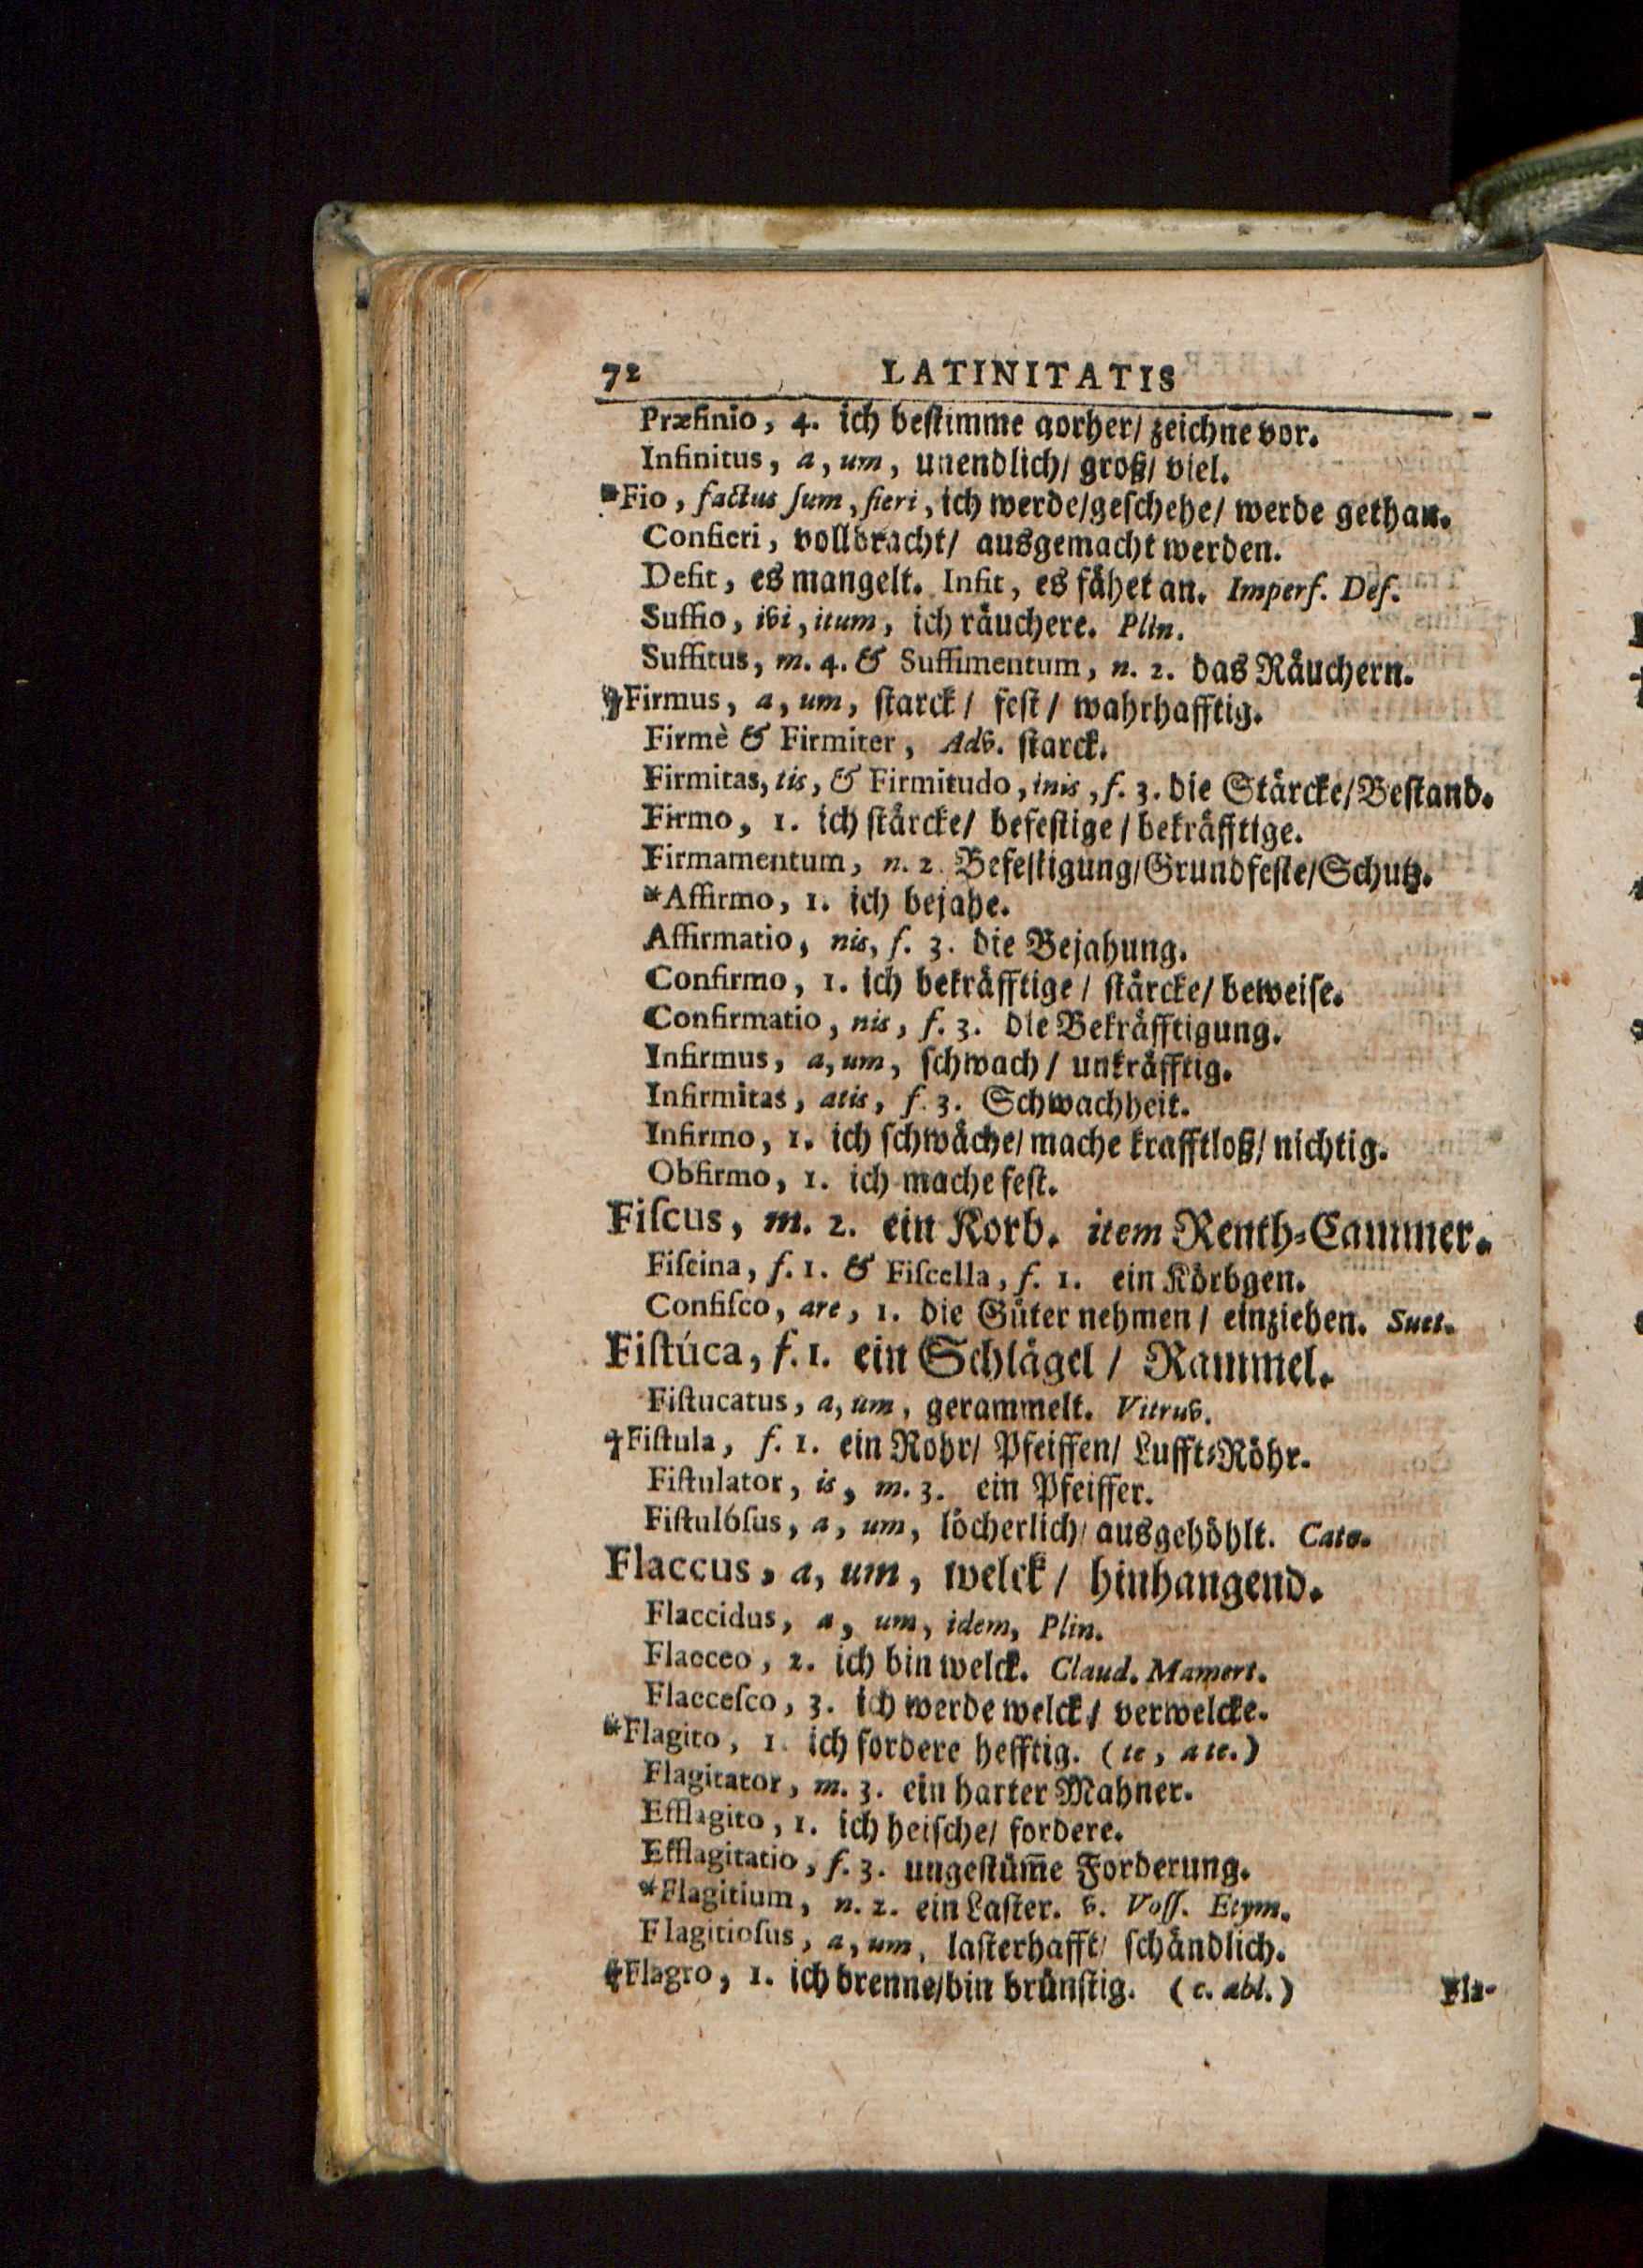 72 LATINITATIS
Præfinio, 4. ich beſtimme vorher/ zeichne vor.
Infinitus, a, um, unendlich/ groß/ viel.
*Fio, factus ſum, fieri, ich werde/geſchehe/ werde gethan.
Confieri, vollbracht/ ausgemacht werden.
Defit, es mangelt. Infit, es fåhet an. Imperf. Def.
Suffio, ivi, itum, ich råuchere. Plin.
Suffitus, m. 4. & Suffimentum, n. 2. das Råuchern.
†Firmus, a, um, ſtarck/ feſt/ wahrhafftig.
Firmè & Firmiter, Adv. ſtarck.
Firmitas, tis, & Firmitudo, inis, f. 3. die Stårcke/Beſtand.
Firmo, 1. ich ſtårcke/ befeſtige/ bekråfftige.
Firmamentum, n. 2. Befeſtigung/Grundfeſte/Schutz.
*Affirmo, 1. ich bejahe.
Affirmatio, nis, f. 3. die Bejahung.
Confirmo, 1. ich bekråfftige/ ſtårcke/ beweiſe.
Confirmatio, nis, f. 3. die Bekråfftigung.
Infirmus, a, um, ſchwach/ unkråfftig.
Infirmitas, atis, f. 3. Schwachheit.
Infirmo, 1. ich ſchwåche/ mache krafftloß/ nichtig.
Obfirmo, 1. ich mache feſt.
Fiſcus, m. 2. ein Korb. item Renth-Cammer.
Fiſcina, f. 1. & Fiſcella, f. 1. ein Körbgen.
Confiſco, are, 1. die Gůter nehmen/ einziehen. Suet.
Fiſtúca, f. 1. ein Schlågel/ Rammel.
Fiſtucatus, a, um, gerammelt. Vitruv.
†Fiſtula, f. 1. ein Rohr/ Pfeiffen/ Lufft-Röhr.
Fiſtulator, is, m. 3. ein Pfeiffer.
Fiſtulóſus, a, um, löcherlich/ ausgehöhlt. Cato.
Flaccus, a, um, welck/ hinhangend.
Flaccidus, a, um, idem, Plin.
Flacceo, 2. ich bin welck. Claud. Mamert.
Flacceſco, 3. ich werde welck/ verwelcke.
*Flagito, 1. ich fordere hefftig. (te, a te.)
Flagitator, m. 3. ein harter Mahner.
Efflagito, 1. ich heiſche/ fordere.
Efflagitatio, f. 3. ungeſtům̄e Forderung.
*Flagitium, n. 2. ein Laſter. v. Voſſ. Etym.
Flagitioſus, a, um, laſterhafft/ ſchåndlich.
†Flagro, 1. ich brenne/bin brůnſtig. (c. abl.)
Fla-